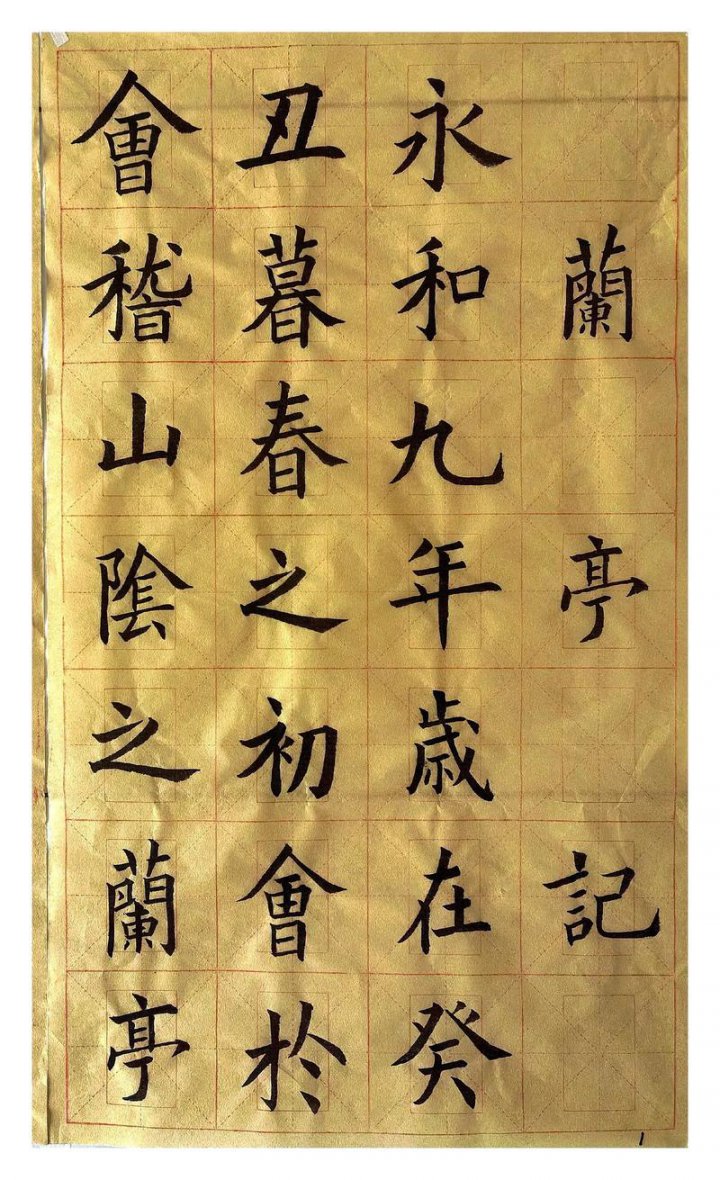 蘭亭記
永和九年歲在癸
丑暮春之初會於
會稽山陰之蘭亭
1